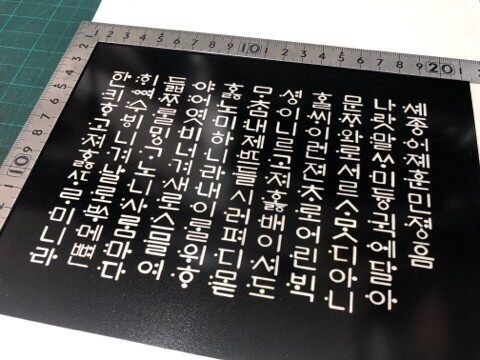 셰종어졔훈민졍음
나랏말ᄊᆞ미듕귁에달아
문ᄍᆞ와로서르ᄉᆞᄆᆞᆺ디아니
홀ᄊᆡ이런젼ᄎᆞ로어린ᄇᆡᆨ
셩이니르고져홇배이셔도
ᄆᆞᄎᆞᆷ내제ᄠᅳ들시러펴디몯
홇노미하니라내이ᄅᆞᆯ위ᄒᆞ
야어엿비너겨새로스믈여
듧ᄍᆞᄅᆞᆯᄆᆡᇰᄀᆞ노니사ᄅᆞᆷ마다
ᄒᆡᅇᅧ수비니겨날로ᄡᅮ메뼌
한킈ᄒᆞ고져홇ᄯᆞᄅᆞ미니라
10
20
10